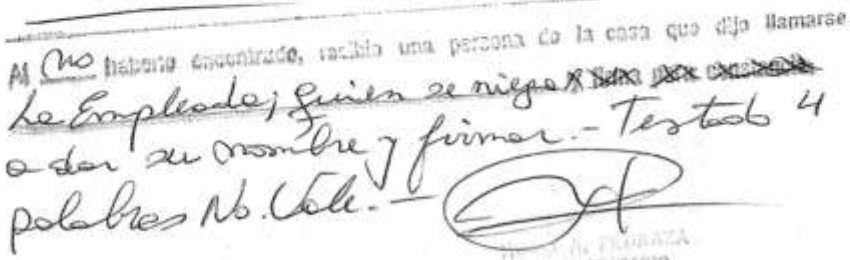 Al no haberlo encontrado, recibió una persona de la casa que dijo llamarse
La Empleada; quien se niega y firma para constancia
a dar su nombre y firmar.- Testado 4
palabras No. Vale.-
A. PEDRAZA